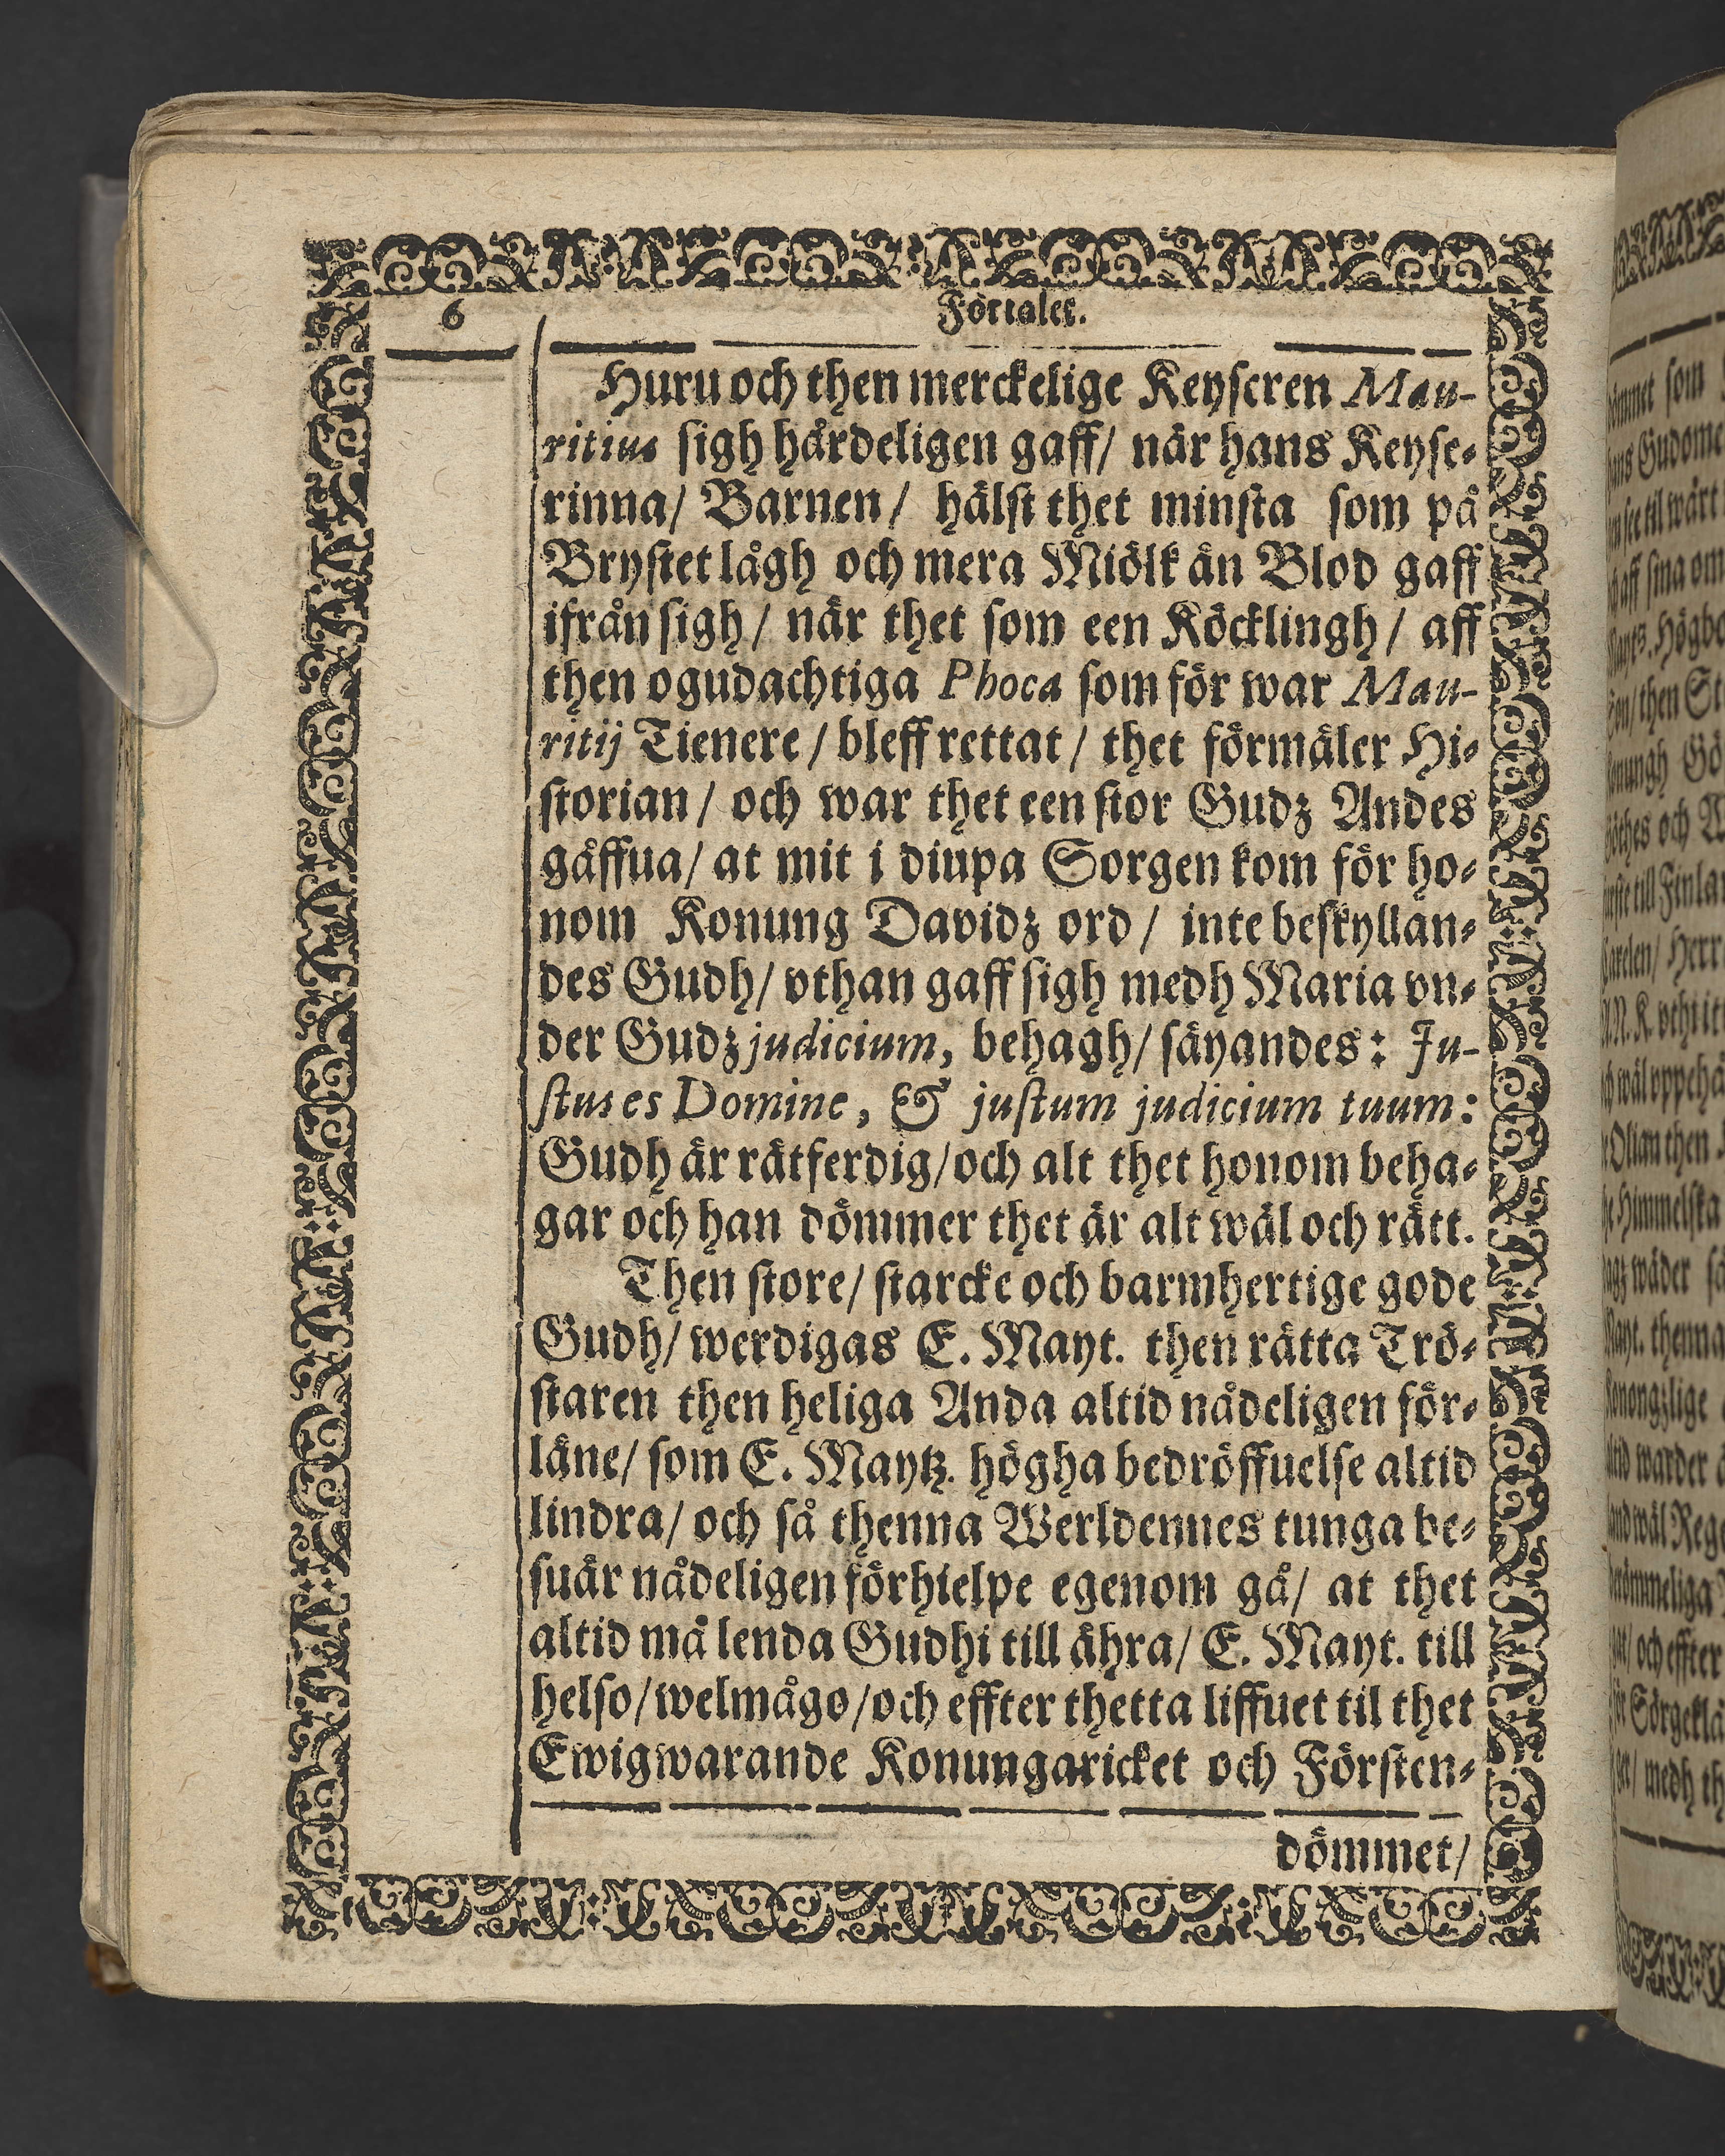 6
Förtalet.
Huru och then merckelige Keyseren Mau-
ritius sigh hårdeligen gaff/ när hans Keyse-
rinna/ Barnen/ hälst thet minsta som på
Brystet lågh och mera Miölk än Blod gaff
ifrån sigh/ när thet som een Köcklingh/ aff
then ogudachtiga Phoca som för war Mau-
ritij Tienere/ bleff rettat/ thet förmäler Hi-
storian/ och war thet een stor Gudz Andes
gåffua/ at mit i diupa Sorgen kom för ho-
nom Konung Davidz ord/ inte beskyllan-
des Gudh/ vthan gaff sigh medh Maria vn-
der Gudz judicium, behagh/ säyandes: Ju-
stus es Domine, & justum judicium tuum:
Gudh är rätferdig/ och alt thet honom beha-
gar och han dömmer thet är alt wäl och rätt.
Then store/ starcke och barmhertige gode
Gudh/ werdigas E. Mayt. then rätta Trö-
staren then heliga Anda altid nådeligen för-
läne/ som E. Maytz. högha bedröffuelse altid
lindra/ och så thenna Werldennes tunga be-
suär nådeligen förhielpe egenom gå/ at thet
altid må lenda Gudhi till ähra/ E. Mayt. till
helso/ welmågo/ och effter thetta liffuet til thet
Ewigwarande Konungaricket och Försten-
dömmet/